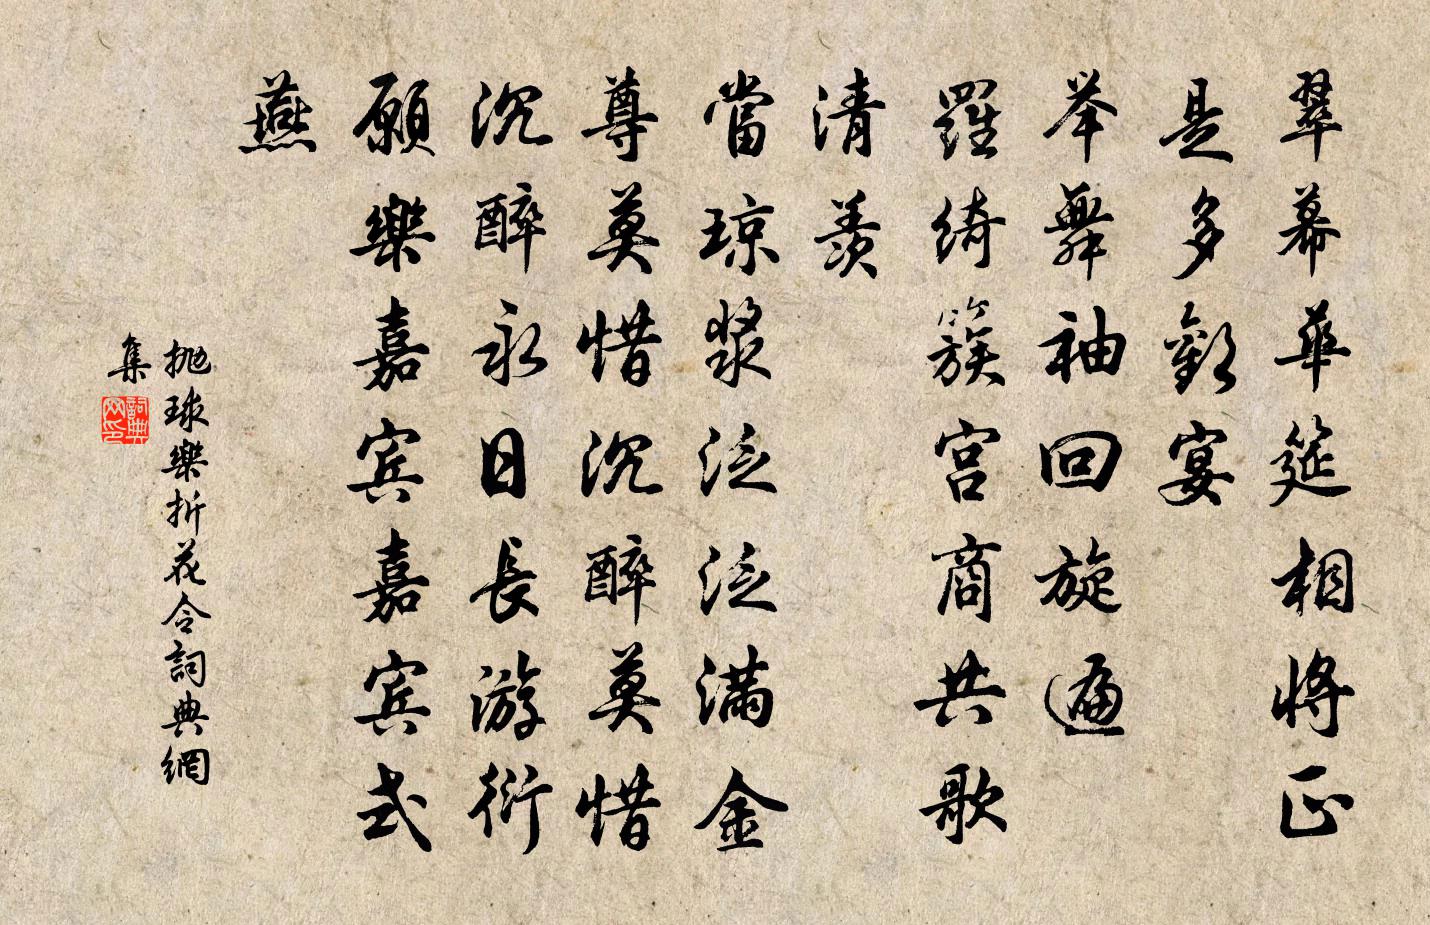 翠幕華筵相將正
是多歡宴
举舞袖回旋遍
羅綺簇宫商共歌
清羨
當琼漿泛泛满金
尊莫惜沉醉莫惜
沉醉永日長游衍
願樂嘉宾嘉宾式
燕
抛球樂折花令詞典網
集
詞典
网印